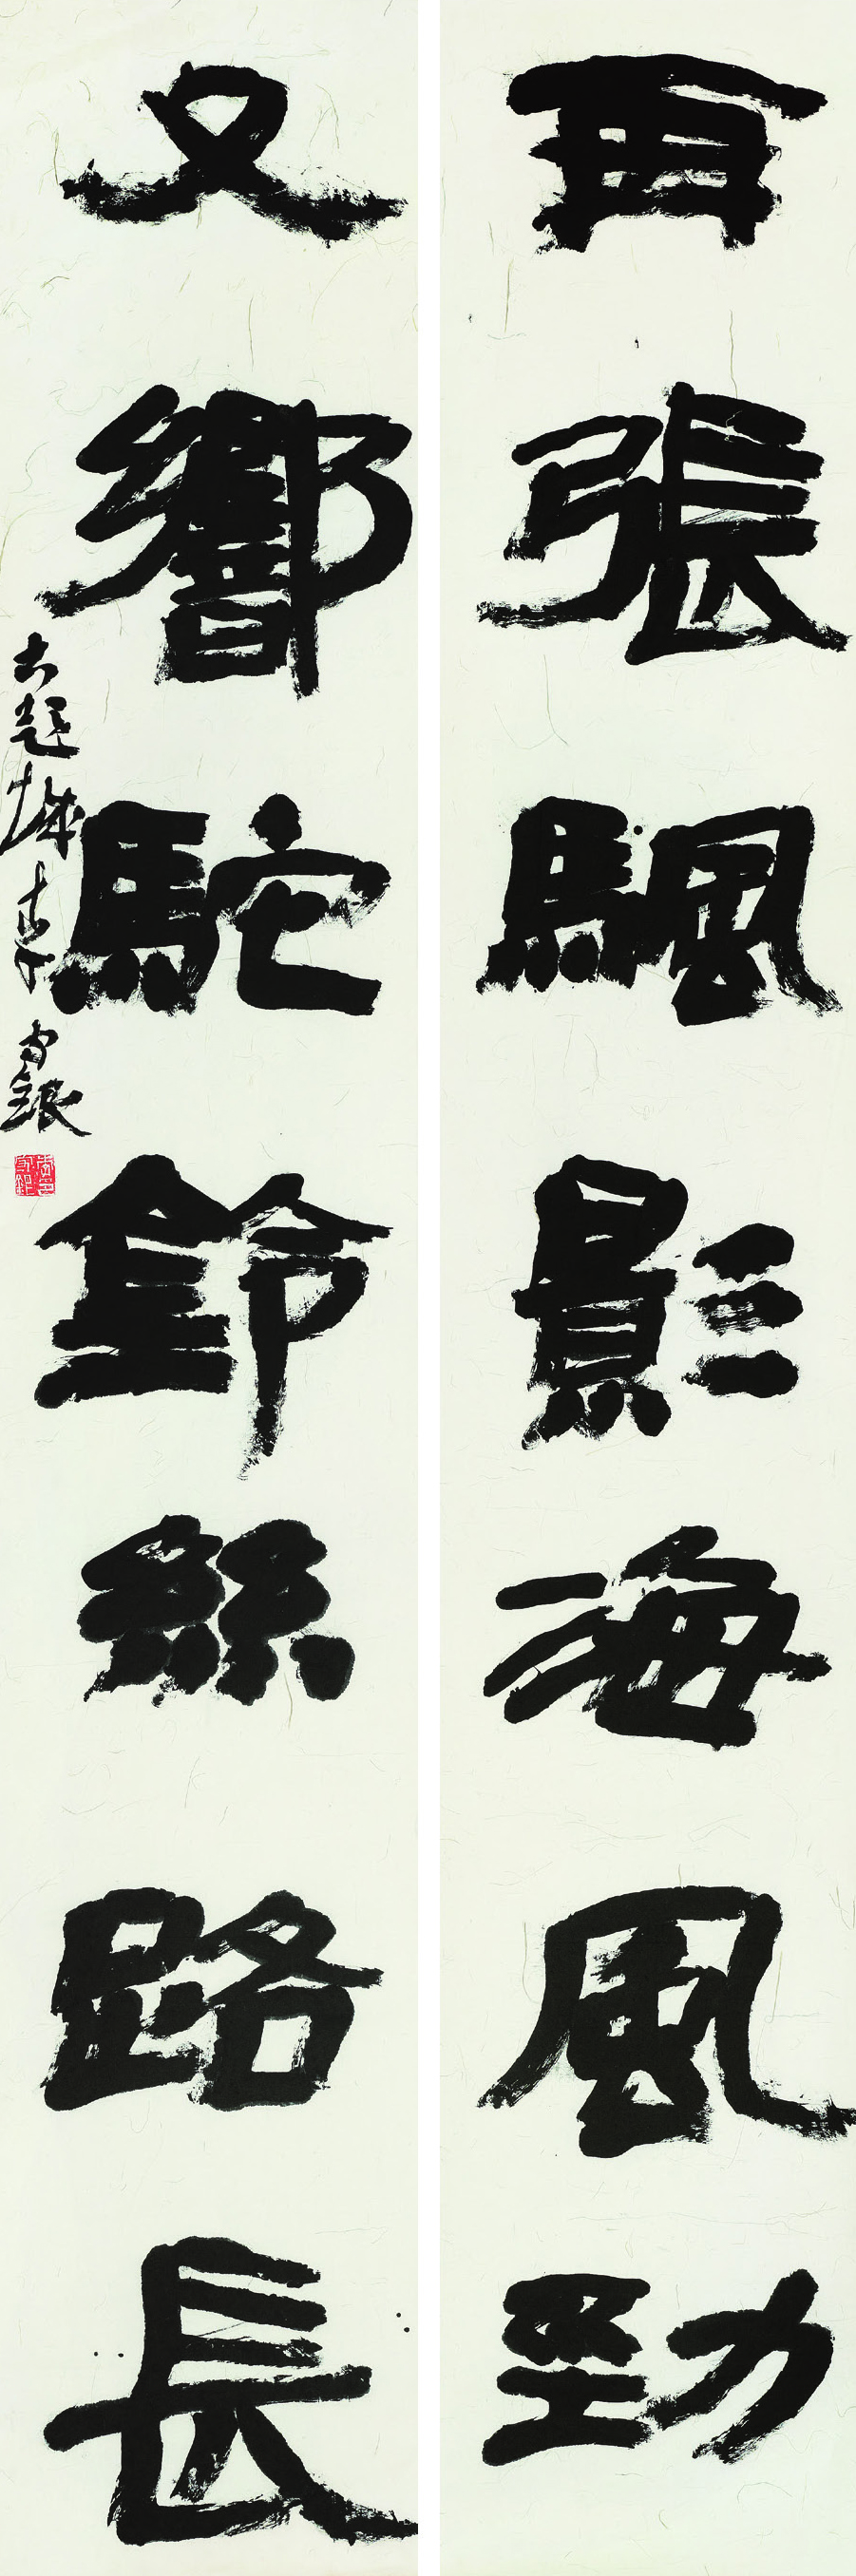 再張颿影海風勁
又響駝鈴絲路長